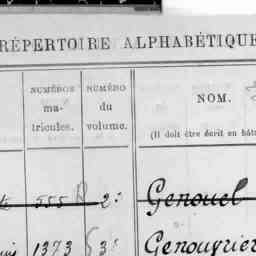 RÉPERTOIRE ALPHABÉTIQUE
NUMÉROS
ma-
tricules.
NUMÉRO
du
volume.
NOM.
(Il doit être écrit en
555 2
Genouel
1373 3
Genouvrier